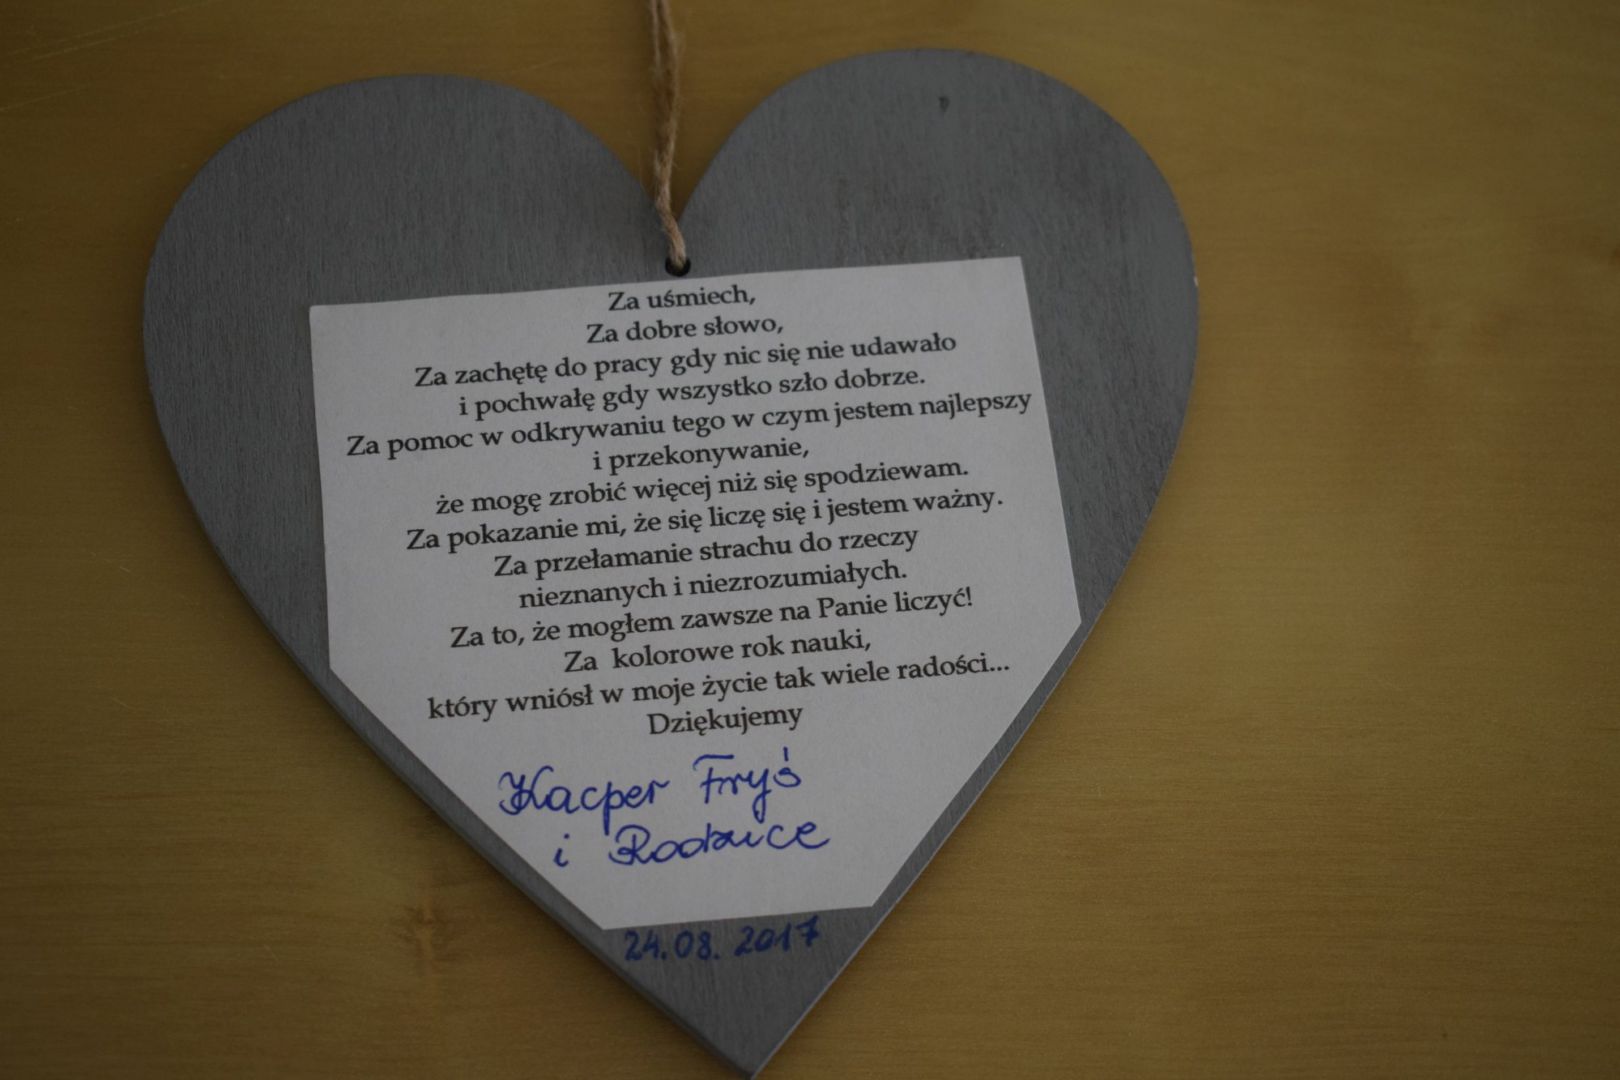 Za uśmiech,
Za dobre słowo,
Za zachętę do pracy gdy nic się nie udawało
i pochwałę gdy wszystko szło dobrze.
Za pomoc w odkrywaniu tego w czym jestem najlepszy
i przekonywanie,
że mogę zrobić więcej niż się spodziewam.
Za pokazanie mi, że się liczę się i jestem ważny.
Za przełamanie strachu do rzeczy
nieznanych i niezrozumiałych.
Za to, że mogłem zawsze na Panie liczyć!
Za kolorowe rok nauki,
który wniósł w moje życie tak wiele radości...
Dziękujemy
Kacper Fryś
i Rodzice
24.08.2017